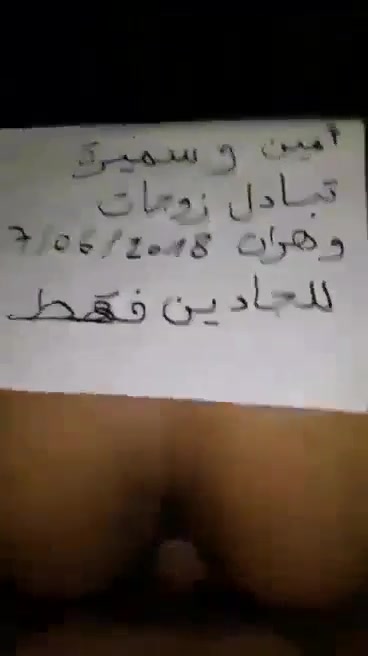 أمين و سميرة
تبادل زوجات
وهران 7/06/2018
للجادين فقط